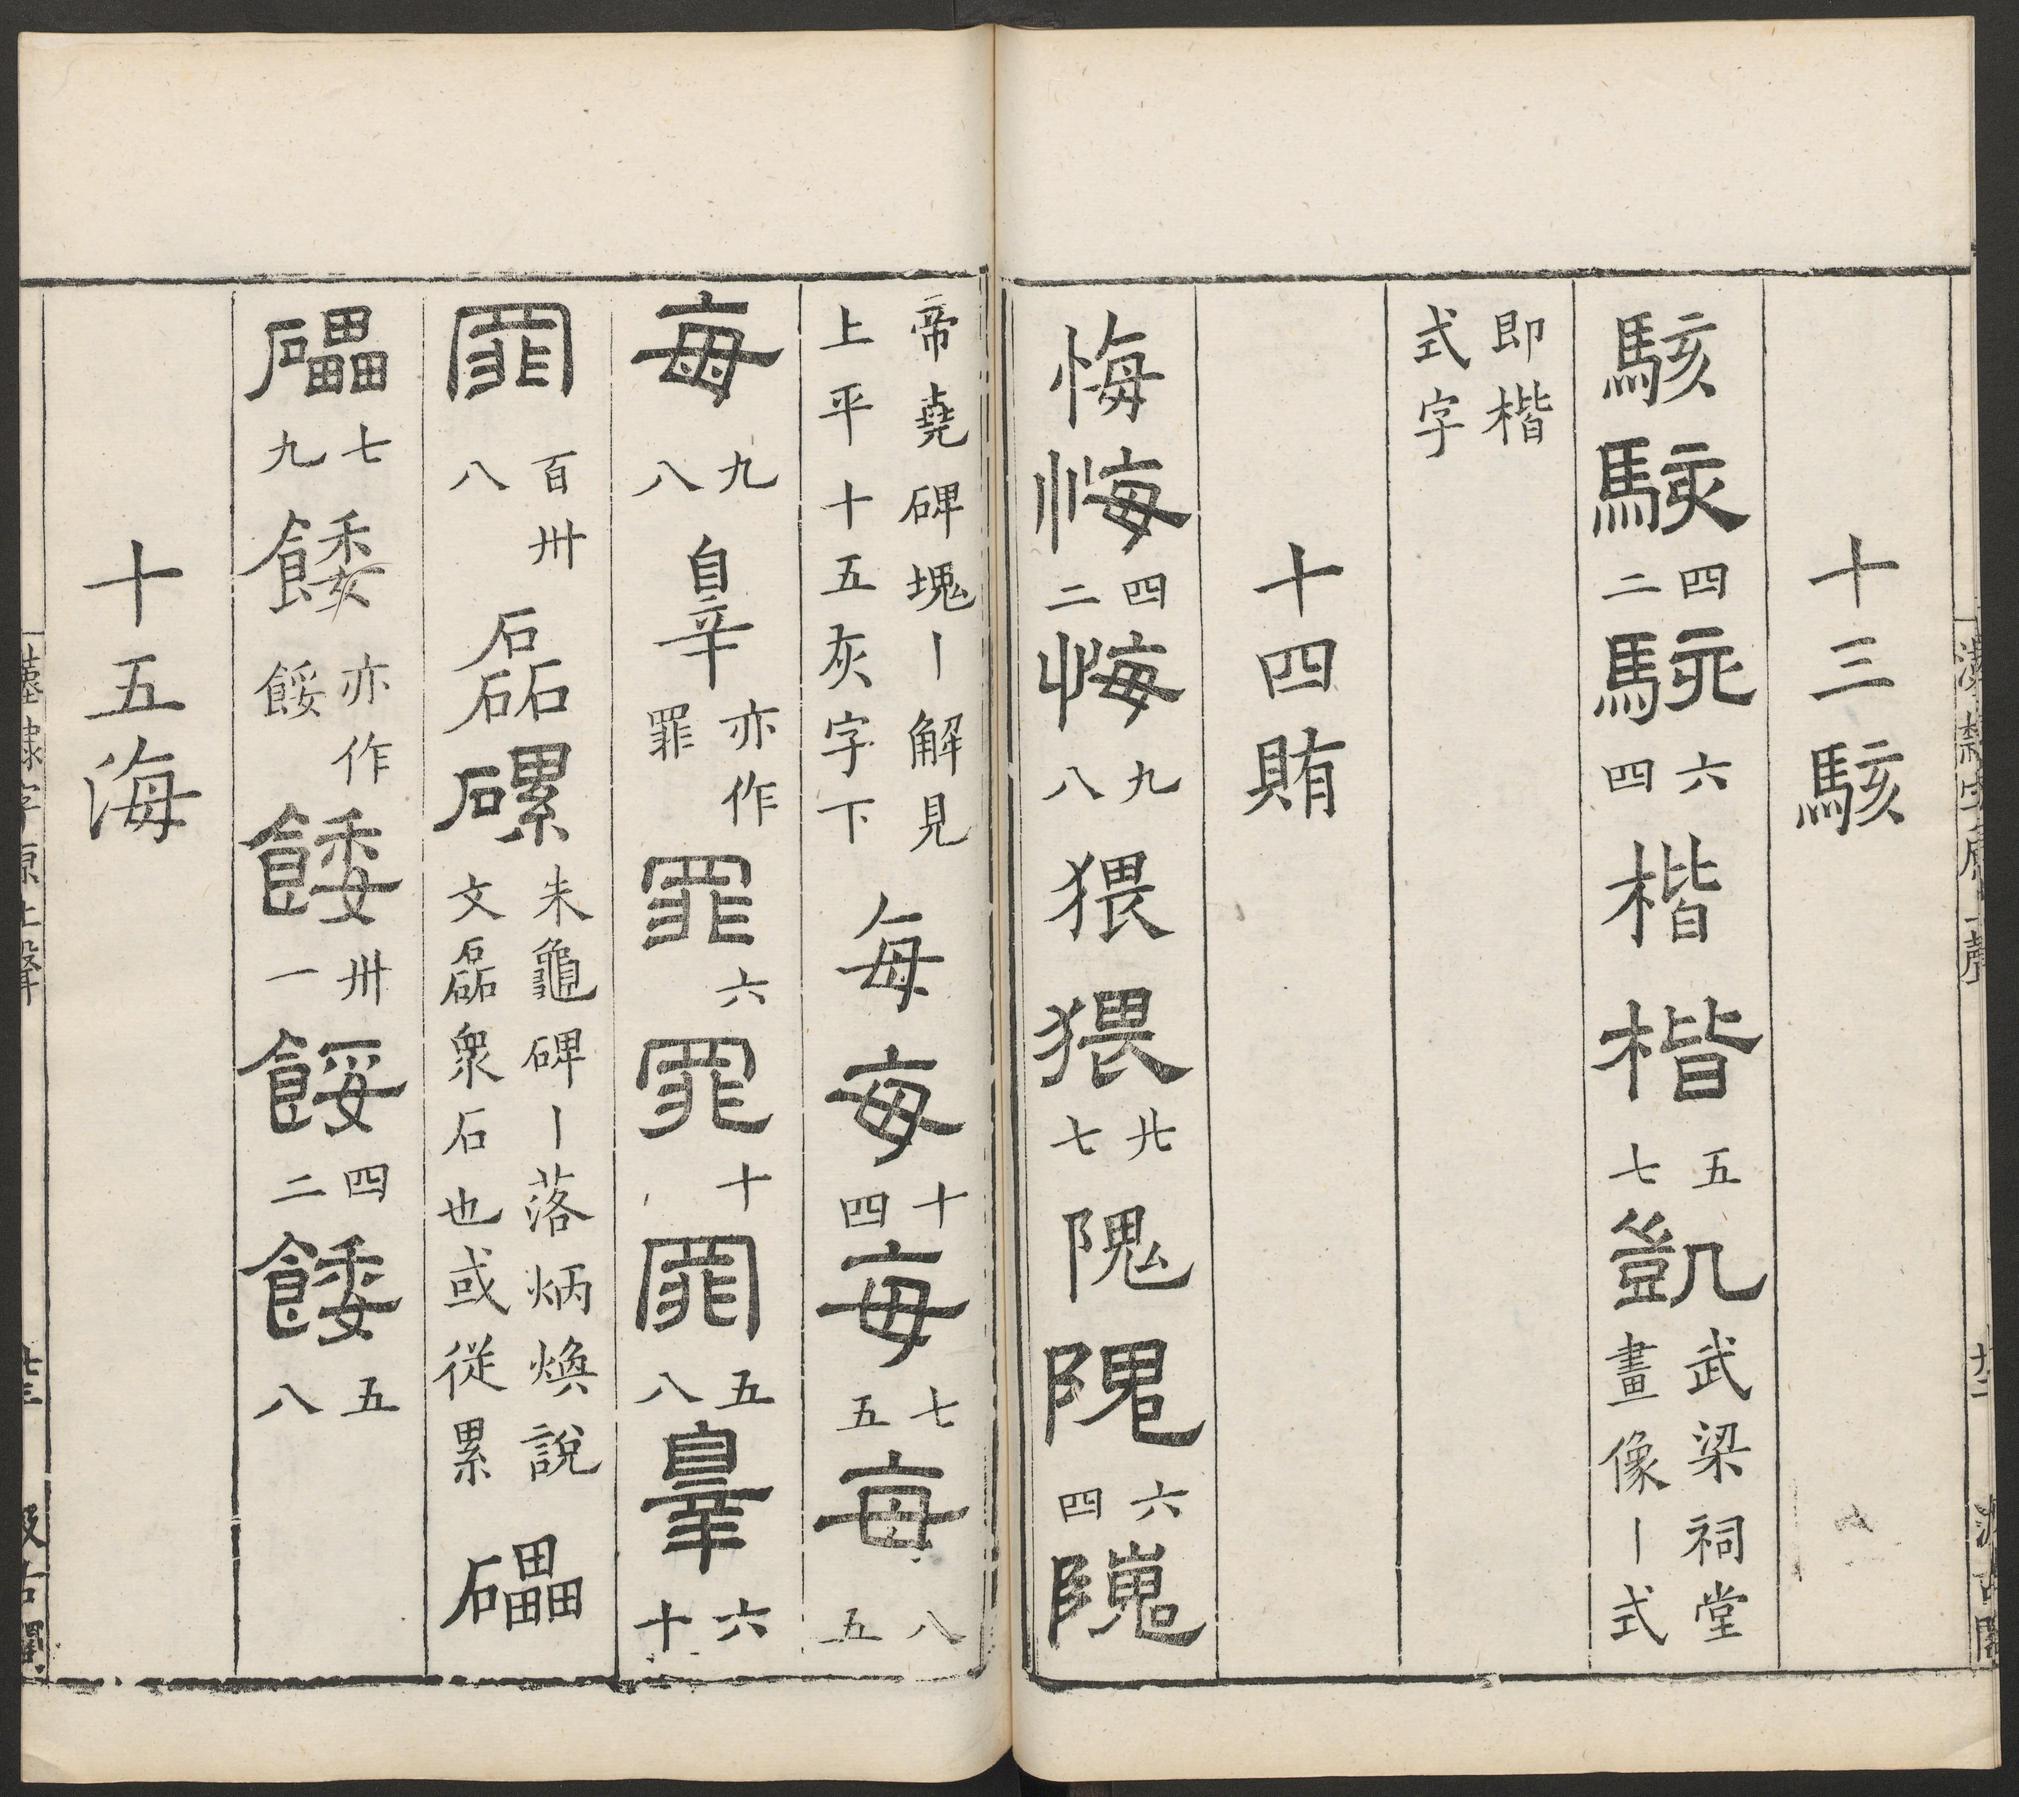 十三駭
駭駭四二駭六四楷楷五七凱武梁祠堂畫像丨式
即楷式字
十四賄
悔悔四二悔九八猥猥廿七隗隗六四隗
帝堯碑塊丨解見上平十五灰字下每每十四每七五每八五
每九八辠亦作罪罪六罪十罪五八辠六十
罪百卅八磊磥朱龜碑丨落炳煥說文磊衆石也或從累礧
礧七九餧亦作餒餧卅一餒四二餧五八
十五海
漢隸字原上聲
廿三
汲古閣